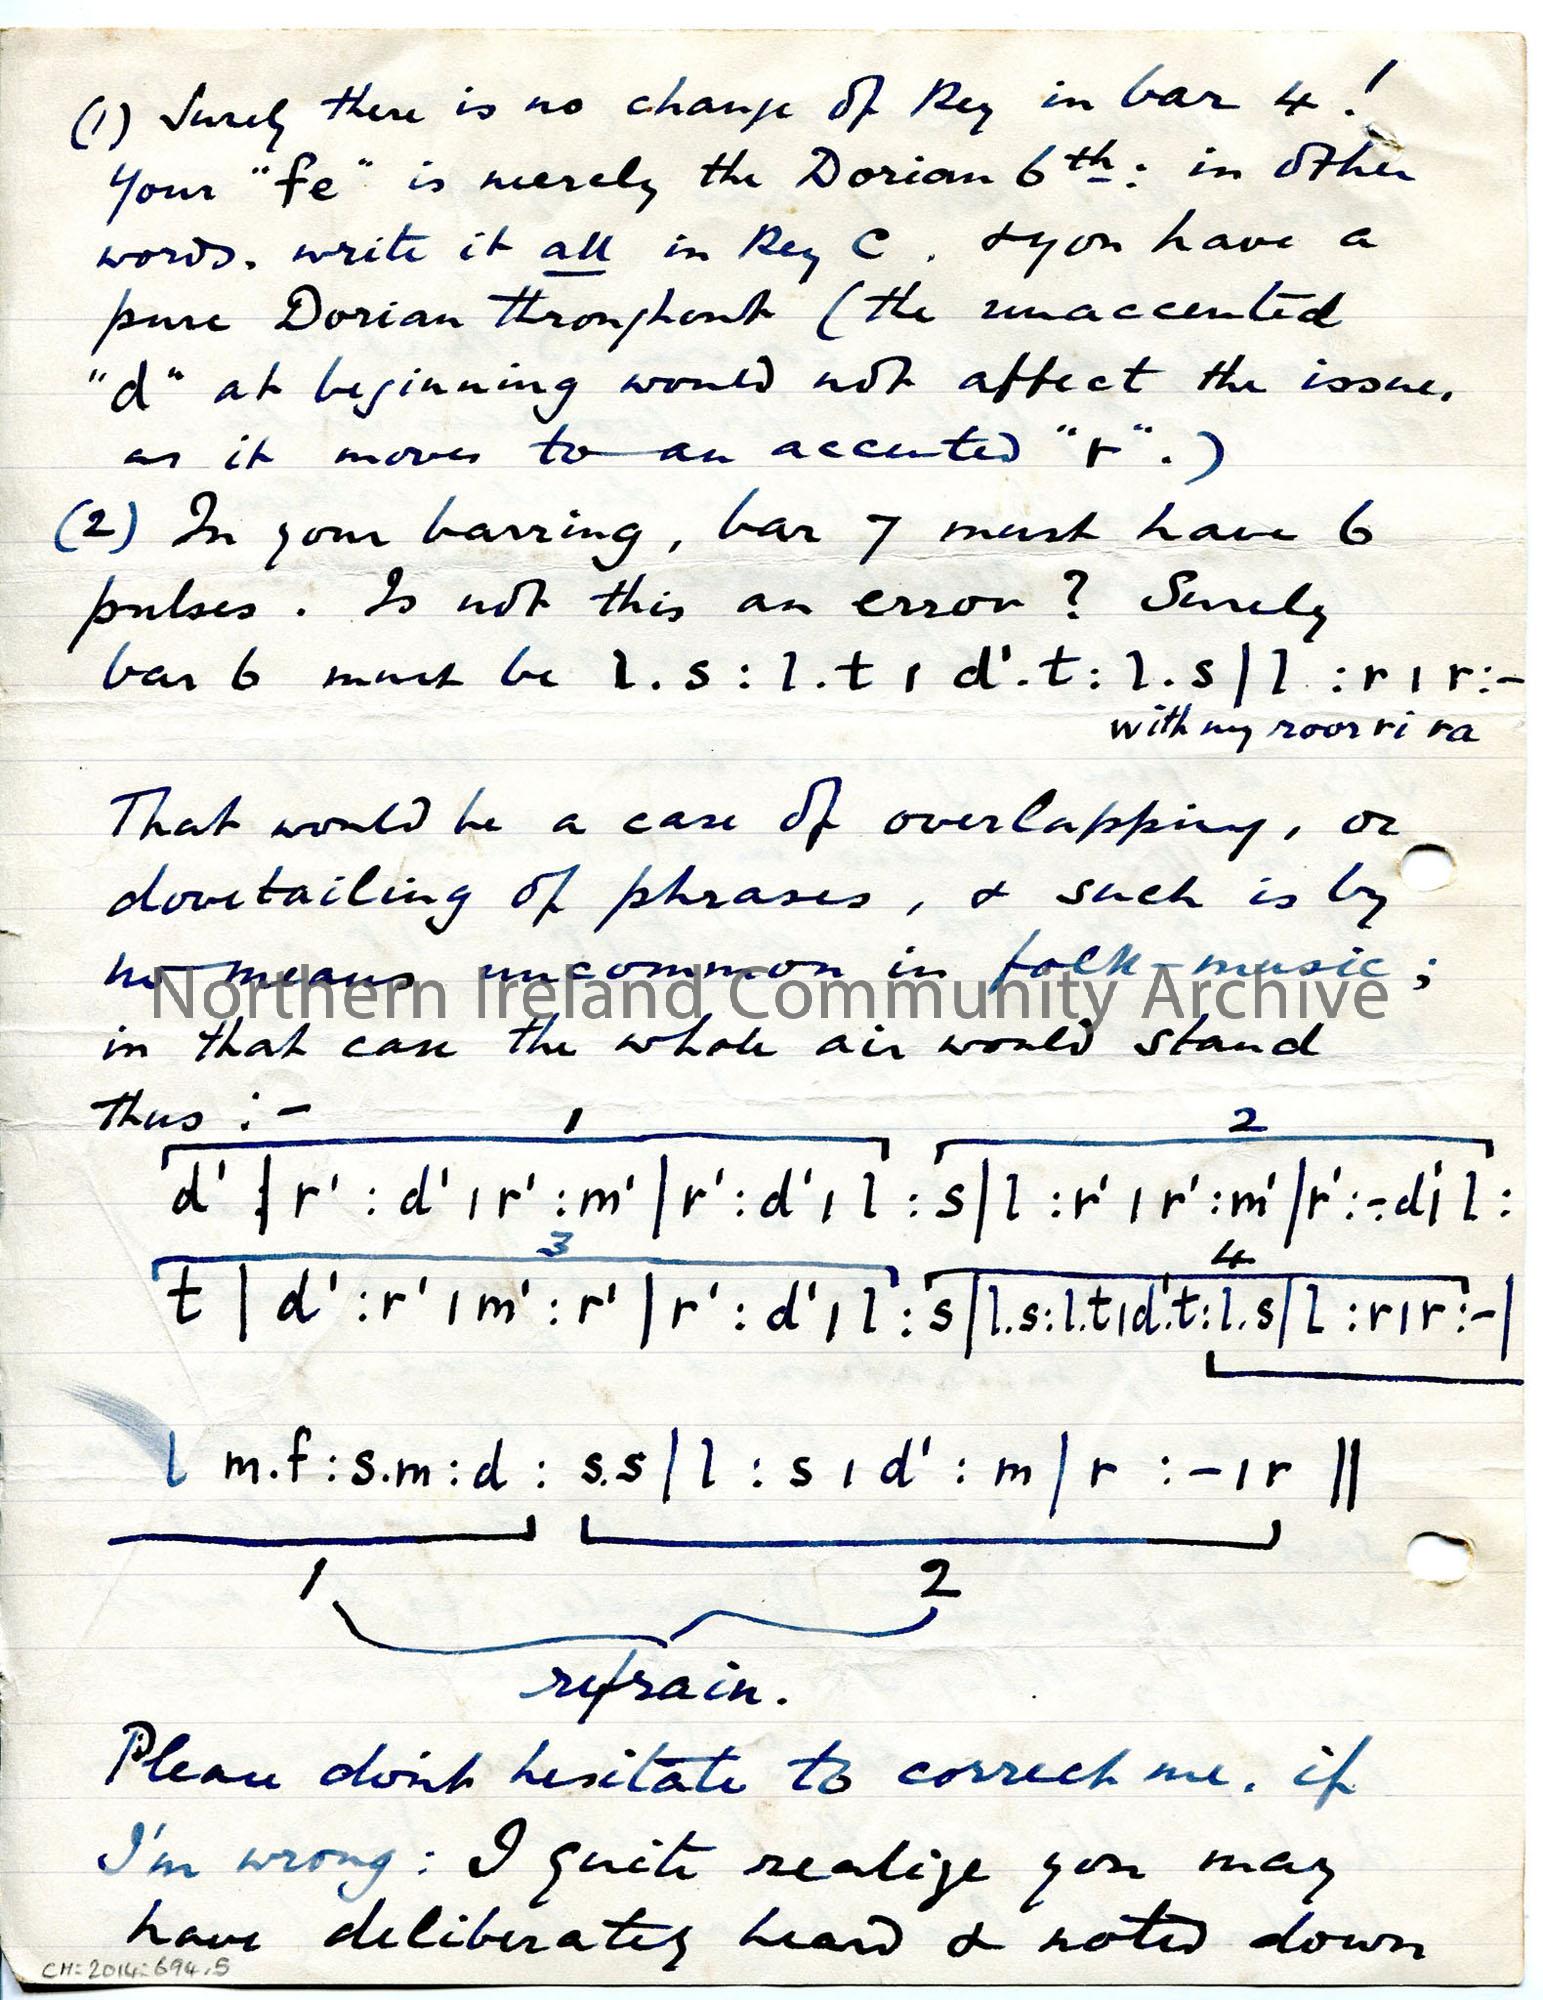 (1) Surely there is no change of Key in bar 4!
Your "fe" is merely the Dorian 6th: in other
words, write it all in Key C, & you have a
pure Dorian throughout (the unaccented
"d" at beginning would not affect the issue,
as it moves to an accented "r".)
(2) In your barring, bar 7 must have 6
pulses. Is not this an error? Surely
bar 6 must be l.s:l.t ı d'.t:l.s|l :r ı r:-
with my roor ri ra
That would be a case of overlapping, or
dovetailing of phrases, & such is by
no means uncommon in folk-music;
in that case the whole air would stand
thus:-
1 2
d' | r' : d' ı r' : m' | r' : d' ı l : s | l : r' ı r' : m' | r' : -. d' ı l :
3 4
t | d' : r' ı m' : r' | r' : d' ı l : s | l.s:l.t ı d'.t:l.s | l : r ı r : - |
l m.f : s.m : d : s.s | l : s ı d' : m | r : - ı r ||
1 2
refrain.
Please don't hesitate to correct me, if
I'm wrong: I quite realize you may
have deliberately heard & noted down
CH:2014:694.5
Northern Ireland Community Archive